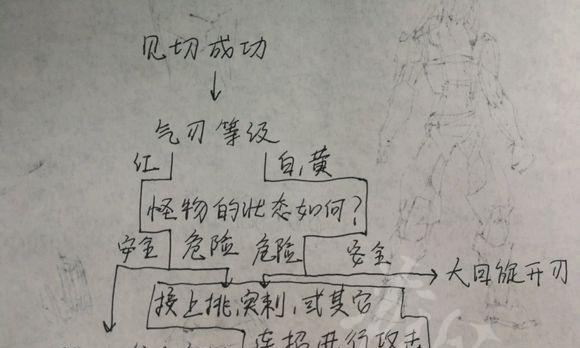 见切成功
气刃等级
红 白,黄
怪物的状态如何?
安全 危险 危险 安全
大回旋开刃
接上挑,突刺,或其它
连招进行攻击